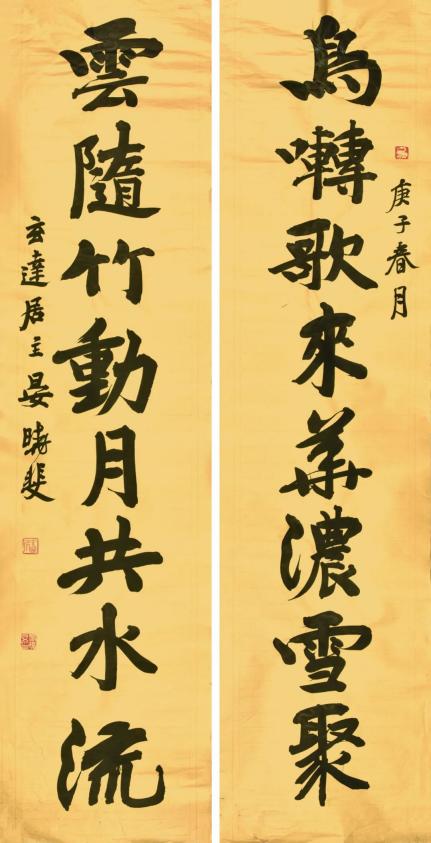 庚子春月
鳥囀歌來華濃雪聚
雲隨竹動月共水流
玄達居主晏斐